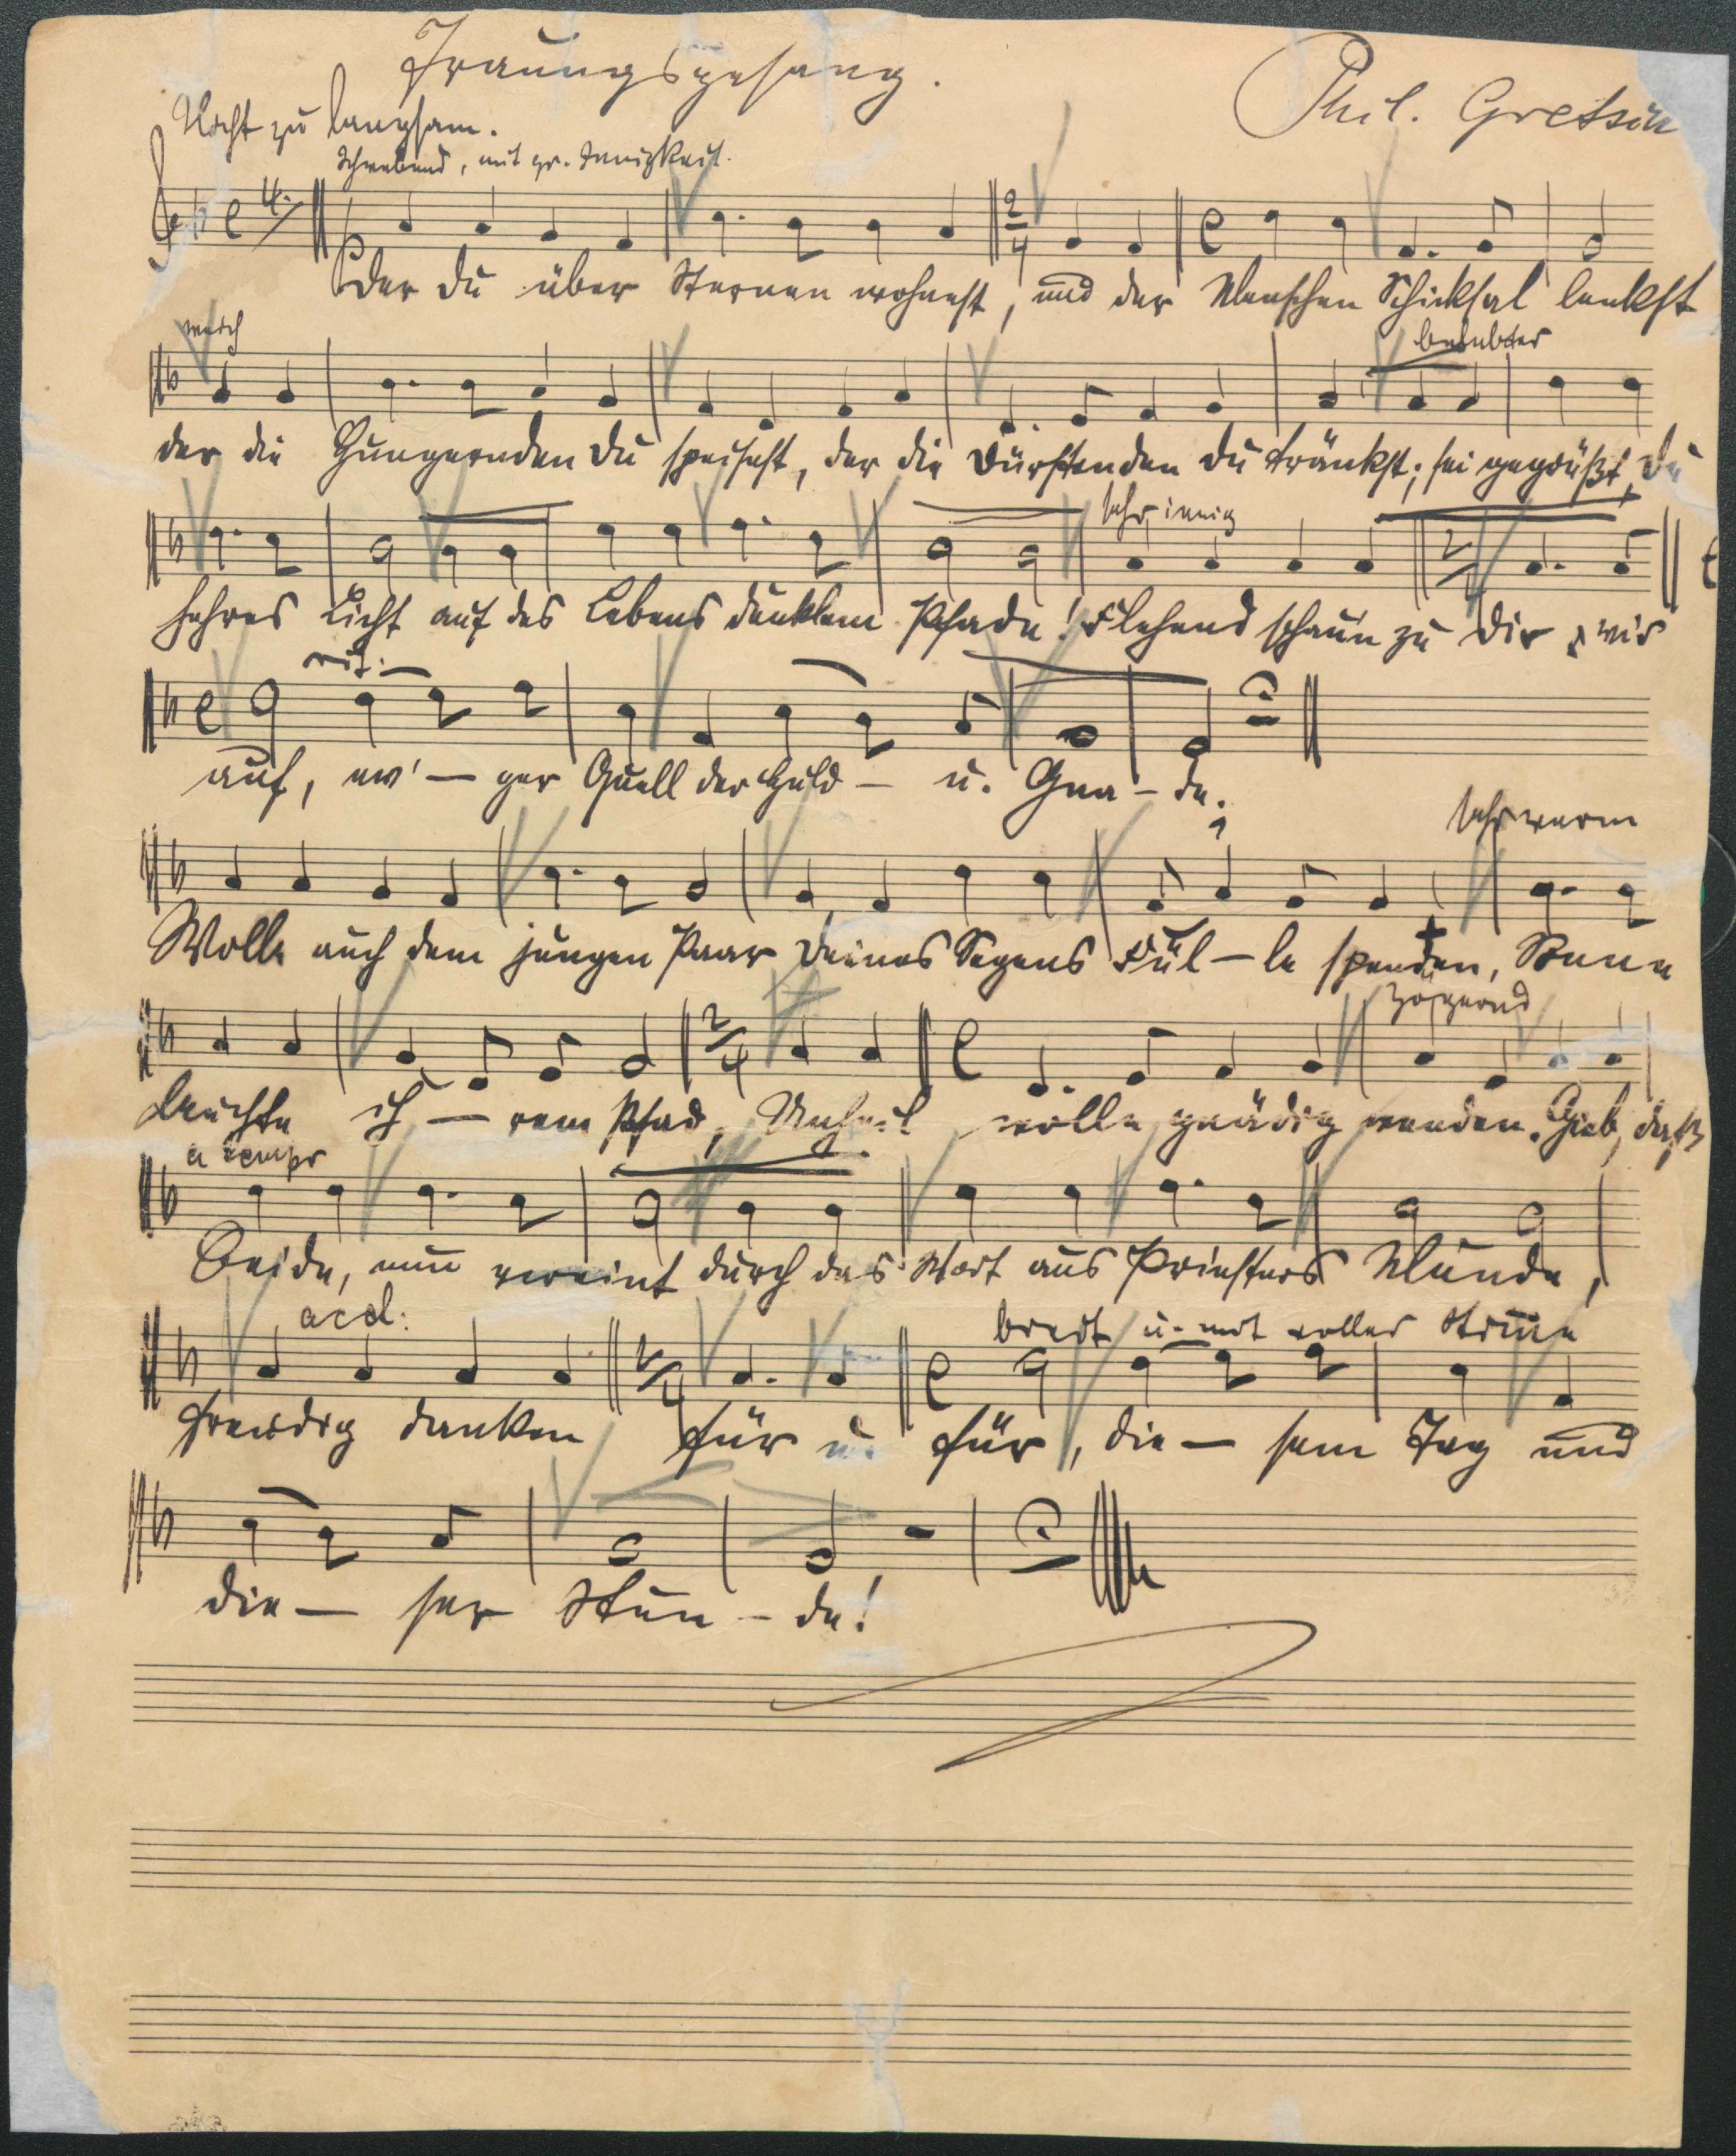 Trauungsgesang.
Phil. Gretsch
Nicht zu langsam.
Schwebend, mit gr. Innigkeit.
4.
2/4
Der du über Sternen wohnest, und der Menschen Schicksal lenkst
weich
belebter
der die Hungernden du speisest, der die Dürstenden du tränkst; sei gegrüßt, du
sehr innig
2/4
hehres Licht auf des Lebens dunklem Pfade! Flehend schau'n zu dir wir
rit.
auf, ew' — ger Quell der Huld — u. Gna — de.
sehr warm
Wolle auch dem jungen Paar deines Segens Fül — le spenden, Sonne
zögernd
2/4
leuchte ih — rem Pfad, Unheil wolle gnädig wenden. Gieb, daß
a tempo
Beide, nun vereint durch das Wort aus Priesters Munde,
accel:
breit u. mit voller Stimme
2/4
freudig danken für u. für, die — sem Tag und
die — ser Stun — de!